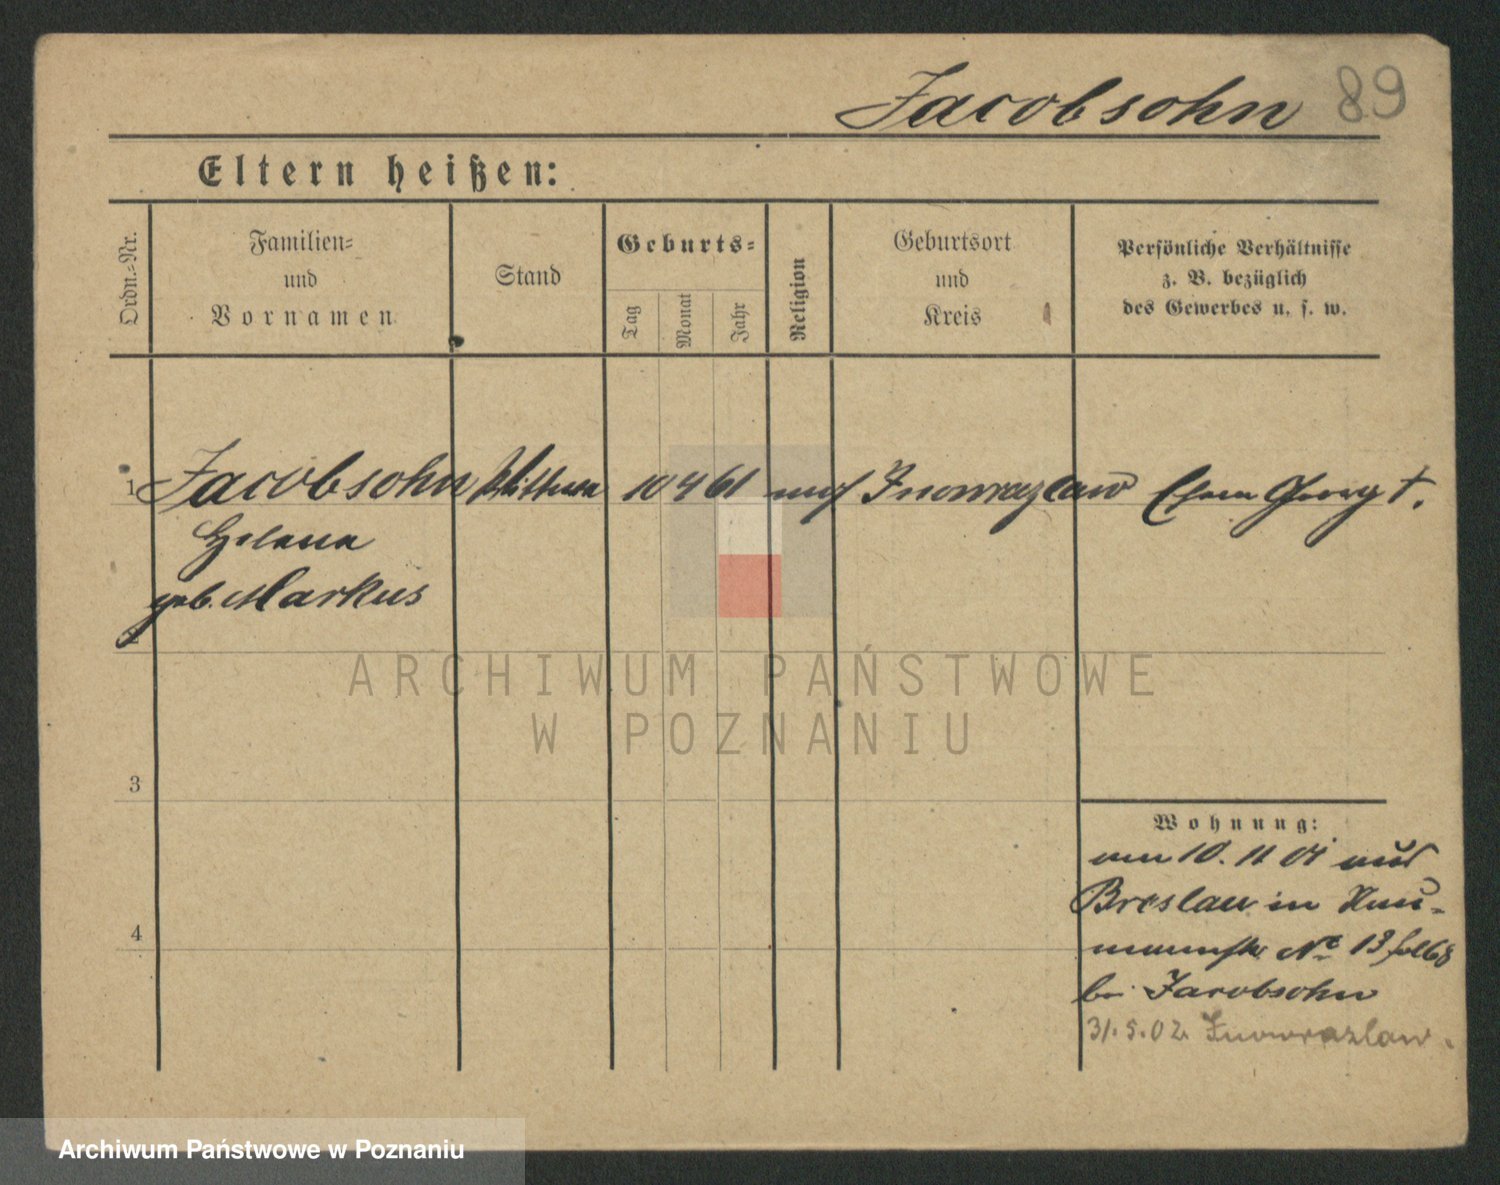 Jacobsohn 89
Eltern heißen:
Ordn.-Nr.
Familien=
und
Vornamen
Stand
Geburts=
Tag
Monat
Jahr
Religion
Geburtsort
und
Kreis
Persönliche Verhältnisse
z. B. bezüglich
des Gewerbes u. s. w.
1 Jacobsohn Wittwe 10 4 61 mos Inowrazlaw Ehem Georg †.
Helena
geb. Markus
2
ARCHIWUM PAŃSTWOWE
W POZNANIU
3
Wohnung:
am 10. 11 01 aus
Breslau in Nau-
mannstr No 13
bei Jacobsohn
4
31.5.02. Inowrazlaw.
Archiwum Państwowe w Poznaniu